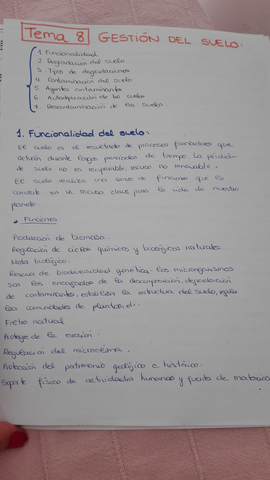 Tema 8 GESTIÓN DEL SUELO:
1. Funcionalidad
2. Degradación del suelo
3. Tipos de degradaciones
4. Contaminación del suelo
5. Agentes contaminantes
6. Autodepuración de los suelos
7. Descontaminación de los suelos.
1. Funcionalidad del suelo:
El suelo es el resultado de procesos formadores que
actúan durante largos periodos de tiempo. La pérdida
de suelo no es recuperable, recurso no renovable.
El suelo realiza una serie de funciones que es
convierte en un recurso clave para la vida de nuestro
planeta
Funciones
Producción de biomasa.
Regulación de ciclos químicos y biológicos naturales.
biológico
Reserva de biodiversidad genética. Los microorganismos
son los encargados de la descomposición, degradación
de contaminantes, establecen la estructura del suelo, regulan
las comunidades de plantas, etc.
Filtro natural
Protege de la erosión.
Regulación del microclima.
Protección del patrimonio geológico e histórico.
Soporte físico de actividades humanas y fuente de materias